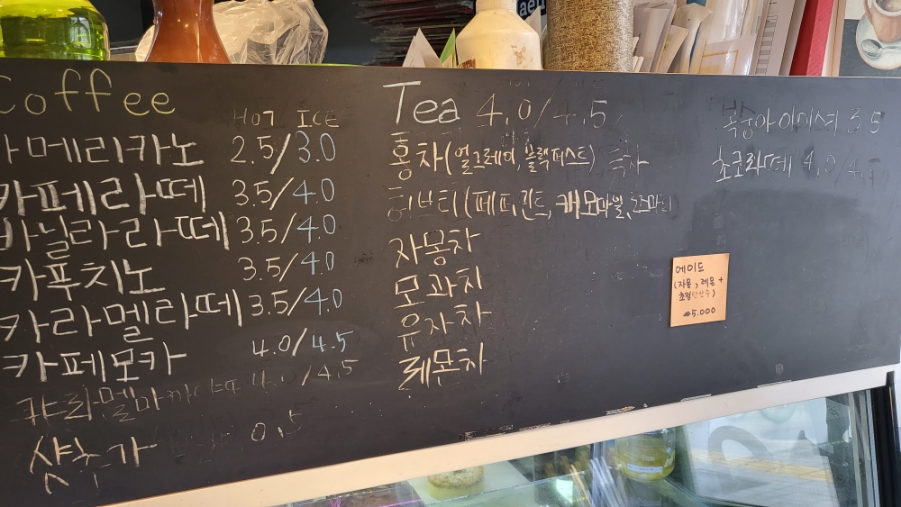 Coffee
HOT ICE
아메리카노 2.5/3.0
카페라떼 3.5/4.0
바닐라라떼 3.5/4.0
카푸치노 3.5/4.0
카라멜라떼 3.5/4.0
카페모카 4.0/4.5
4.0/4.5
샷추가 0.5
Tea 4.0/4.5
홍차(얼그레이, 블랙퍼스트) 녹차
허브티(페퍼민트, 캐모마일, 로즈마리)
자몽차
모과차
유자차
레몬차
복숭아 아이스티 3.5
초코라떼 4.0/4.5
에이드
(자몽, 레몬 +
초정탄산수)
5.000